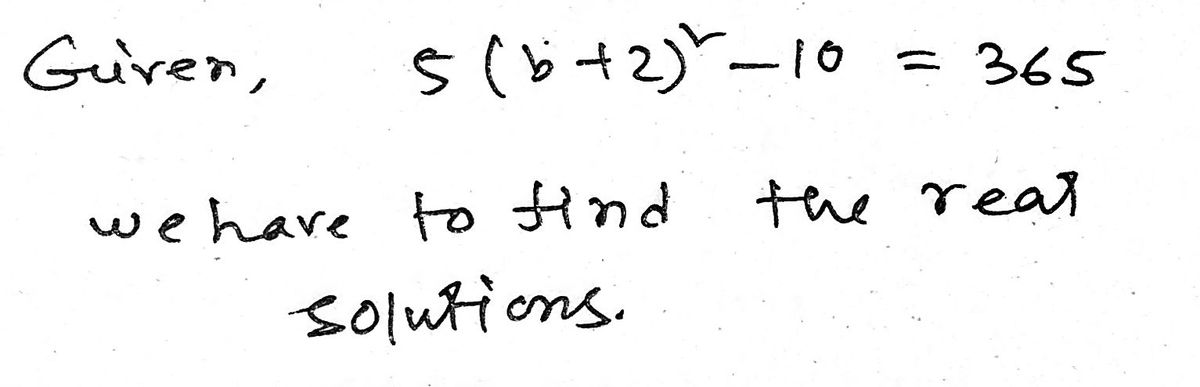 Given, 5(b+2)² - 10 = 365
we have to find the real
solutions.